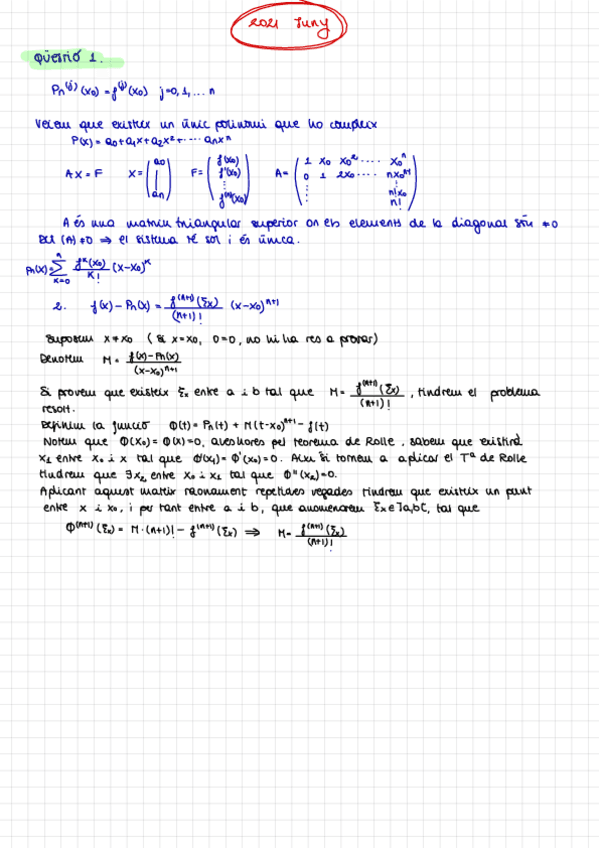 2021 Juny
Qüestió 1.
Pn^(j)(x₀) = f^(j)(x₀) j=0, 1, ... n
Veiem que existeix un únic polinomi que ho compleix
P(x) = a₀+a₁x+a₂x²+ ···· aₙxⁿ
AX = F X = (a₀ | aₙ) F = (f(x₀) f'(x₀) ⋮ f^(n)(x₀)) A = (1 x₀ x₀² ···· x₀ⁿ 0 1 2x₀ ···· nx₀ⁿ⁻¹ ⋮ n!x₀ n!)
A és una matriu triangular superior on els elements de la diagonal són ≠0
Det (A) ≠0 ⇒ el sistema té sol i és única.
Pn(x) = Σ_{k=0}^{n} f^k(x₀)/k! (x-x₀)^k
2. f(x) - Pn(x) = f^(n+1)(ξx)/(n+1)! (x-x₀)^n+1
Suposem x≠x₀ (si x=x₀, 0=0, no hi ha res a provar)
Denotem M = f(x)-Pn(x)/(x-x₀)^n+1
Si provem que existeix ξx entre a i b tal que M = f^(n+1)(ξx)/(n+1)!, tindrem el problema
resolt.
Definim la funció Φ(t) = Pn(t) + M(t-x₀)^n+1 - f(t)
Notem que Φ(x₀) = Φ(x) = 0, aleshores pel teorema de Rolle, sabem que existirà
x₁ entre x₀ i x tal que Φ'(x₁) = Φ'(x₀) = 0. Així si tornem a aplicar el Tª de Rolle
tindrem que ∃x₂ entre x₀ i x₁ tal que Φ''(x₂)=0.
Aplicant aquest mateix raonament repetides vegades tindrem que existeix un punt
entre x i x₀, i per tant entre a i b, que anomenarem ξx∈]a,b[, tal que
Φ^(n+1)(ξx) = M·(n+1)! - f^(n+1)(ξx) ⇒ M = f^(n+1)(ξx)/(n+1)!